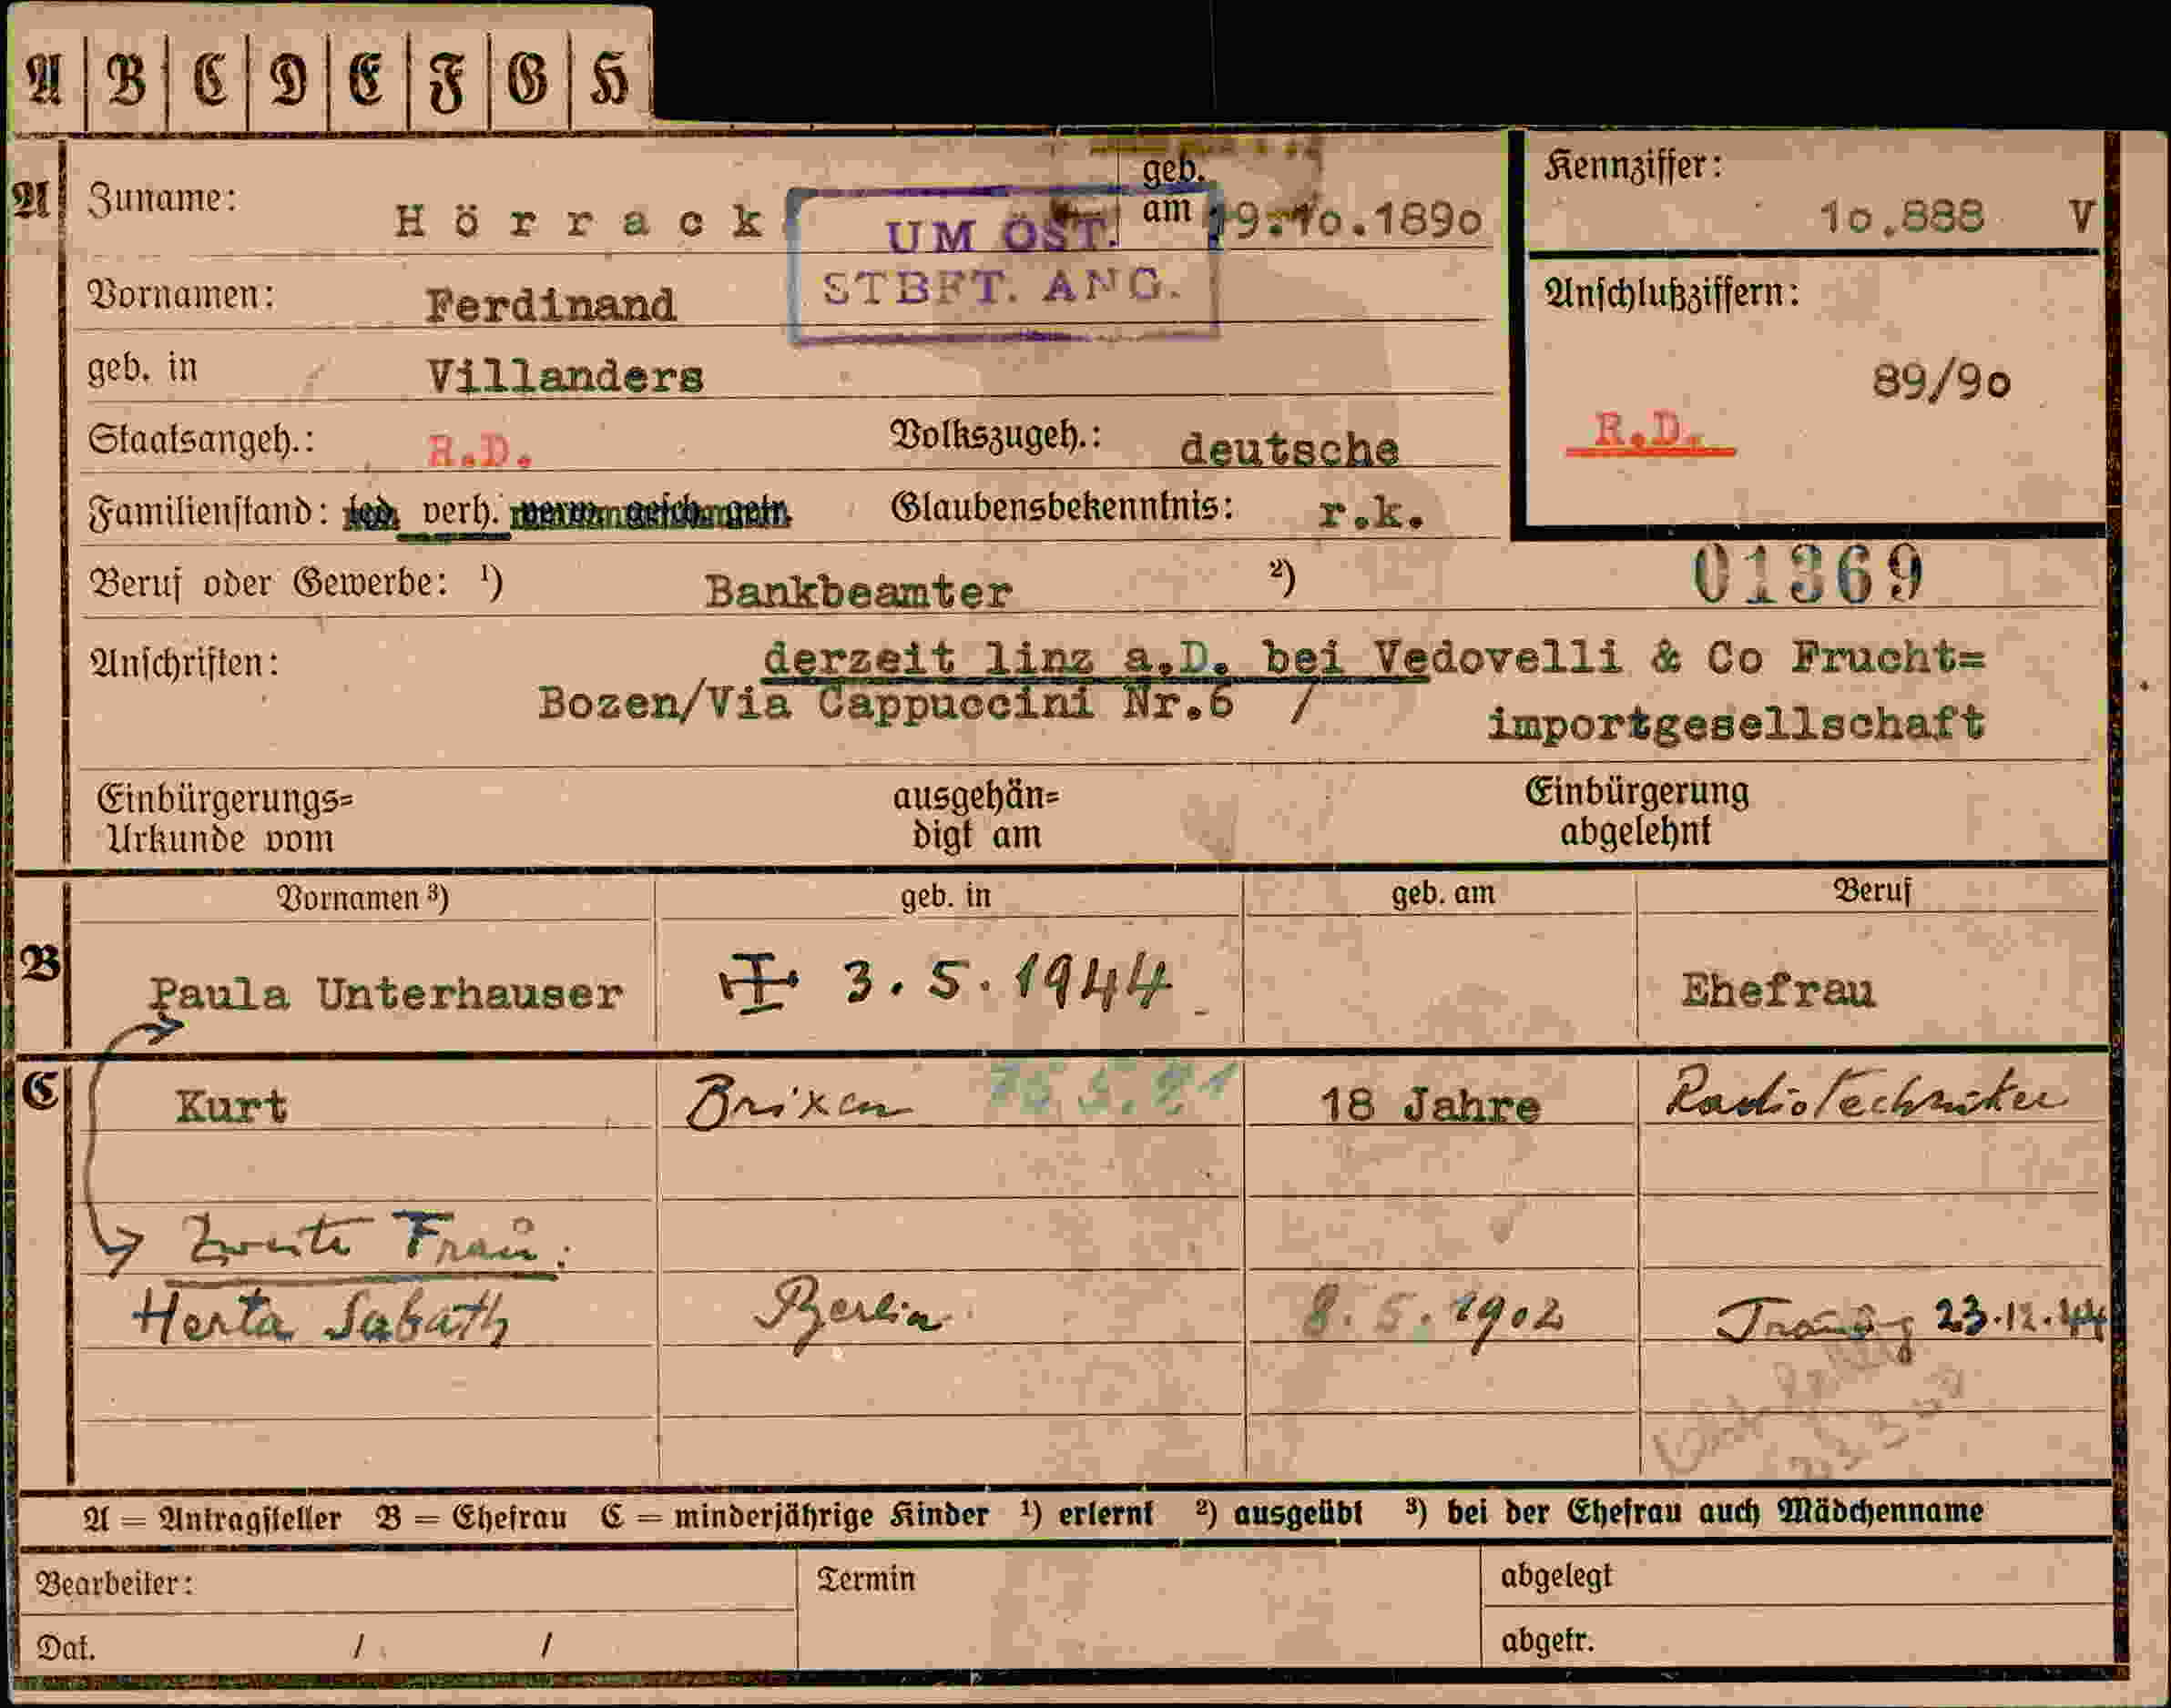 A B C D E F G H
A Zuname: Hörrack geb. am 19.10.1890
UM ÖST.
STBFT. ANG.
Kennziffer:
10.888 V
Vornamen: Ferdinand
Anschlußziffern:
89/90
R.D.
geb. in Villanders
Staatsangeh.: R.D. Volkszugeh.: deutsche
Familienstand: led. verh. verw. gesch. getr. Glaubensbekenntnis: r.k.
Beruf oder Gewerbe: ¹) Bankbeamter ²)
01369
Anschriften: derzeit linz a.D. bei Vedovelli & Co Frucht=
Bozen/Via Cappuccini Nr.6 / importgesellschaft
Einbürgerungs= ausgehän= Einbürgerung
Urkunde vom digt am abgelehnt
Vornamen ³) geb. in geb. am Beruf
B Paula Unterhauser 3.5.1944 Ehefrau
C Kurt Brixen 18 Jahre Radiotechniker
Zweite Frau:
Herta Sabath Berlin 8.5.1902 Trauung 23.12.44
A = Antragsteller B = Ehefrau C = minderjährige Kinder ¹) erlernt ²) ausgeübt ³) bei der Ehefrau auch Mädchenname
Bearbeiter: Termin abgelegt
Dat. / / abgetr.